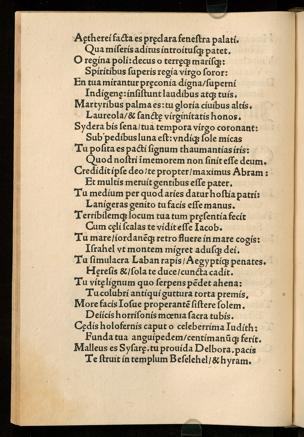 Aętherei facta es pręclara fenestra palati.
Qua miseris aditus introitusq; patet.
O regina poli: decus o terręq; marisq:
Spiritibus superis regia virgo soror:
En tua mirantur pręconia digna/superni
Indigenę: insistunt laudibus atq; tuis.
Martyribus palma es: tu gloria ciuibus altis.
Laureola/& sanctę virginitatis honos.
Sydera bis sena/tua tempora virgo coronant:
Sub pedibus luna est: vndiq; sole micas
Tu posita es pacti signum thaumantias iris:
Quod nostri imemorem non sinit esse deum.
Credidit ipse deo/te propter/maximus Abram:
Et multis meruit gentibus esse pater.
Tu medium per quod aries datur hostia patri:
Lanigeras genito tu facis esse manus.
Terribilemq; locum tua tum presentia fecit
Cum cęli scalas te vidit esse Iacob.
Tu mare/iordanēq; retro fluere in mare cogis:
Israhel vt montem migret adusq; dei.
Tu simulacra Laban rapis/Aegyptiq; penates.
Hęresis &/sola te duce/cuncta cadit.
Tu vitę lignum quo serpens pēdet ahena:
Tu colubri antiqui guttura torta premis.
More facis Iosue properantē sistere solem.
Deiicis horrisonis mœnia sacra tubis.
Cędis holofernis caput o celeberrima Iudith:
Funda tua anguipedem/centimanūq; ferit.
Malleus es Sysarę. tu prouida Delbora. pacis
Te struit in templum Beselehel/& hyram.